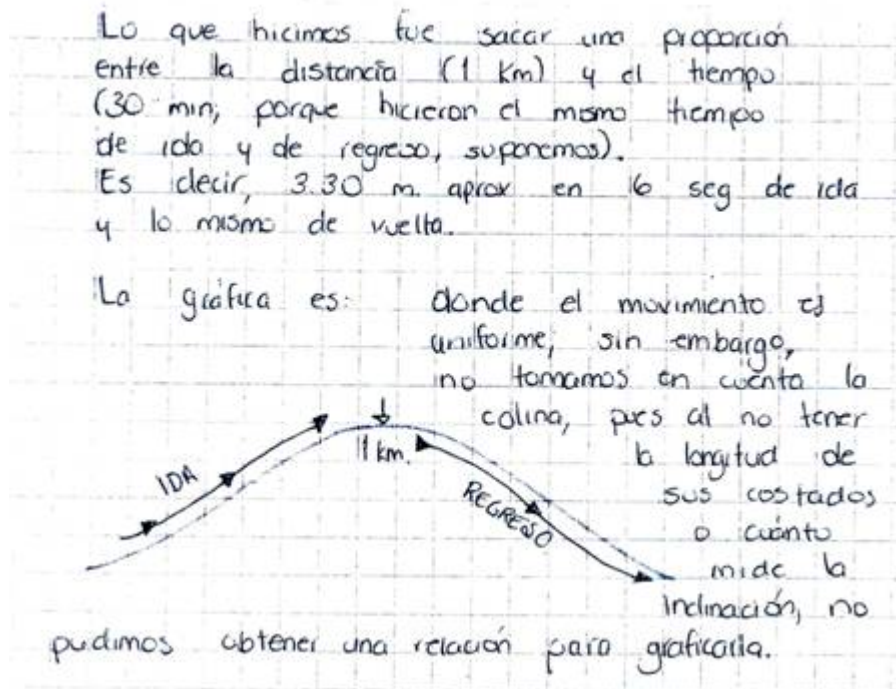 Lo que hicimos fue sacar una proporción
entre la distancia (1 Km) y el tiempo
(30 min, porque hicieron el mismo tiempo
de ida y de regreso, suponemos).
Es decir, 3.30 m. aprox en 6 seg de ida
y lo mismo de vuelta.
La gráfica es: donde el movimiento es
uniforme, sin embargo,
no tomamos en cuenta la
colina, pues al no tener
1 km.
la longitud de
IDA
sus costados
REGRESO
o cuánto
mide la
inclinación, no
pudimos obtener una relación para graficarla.